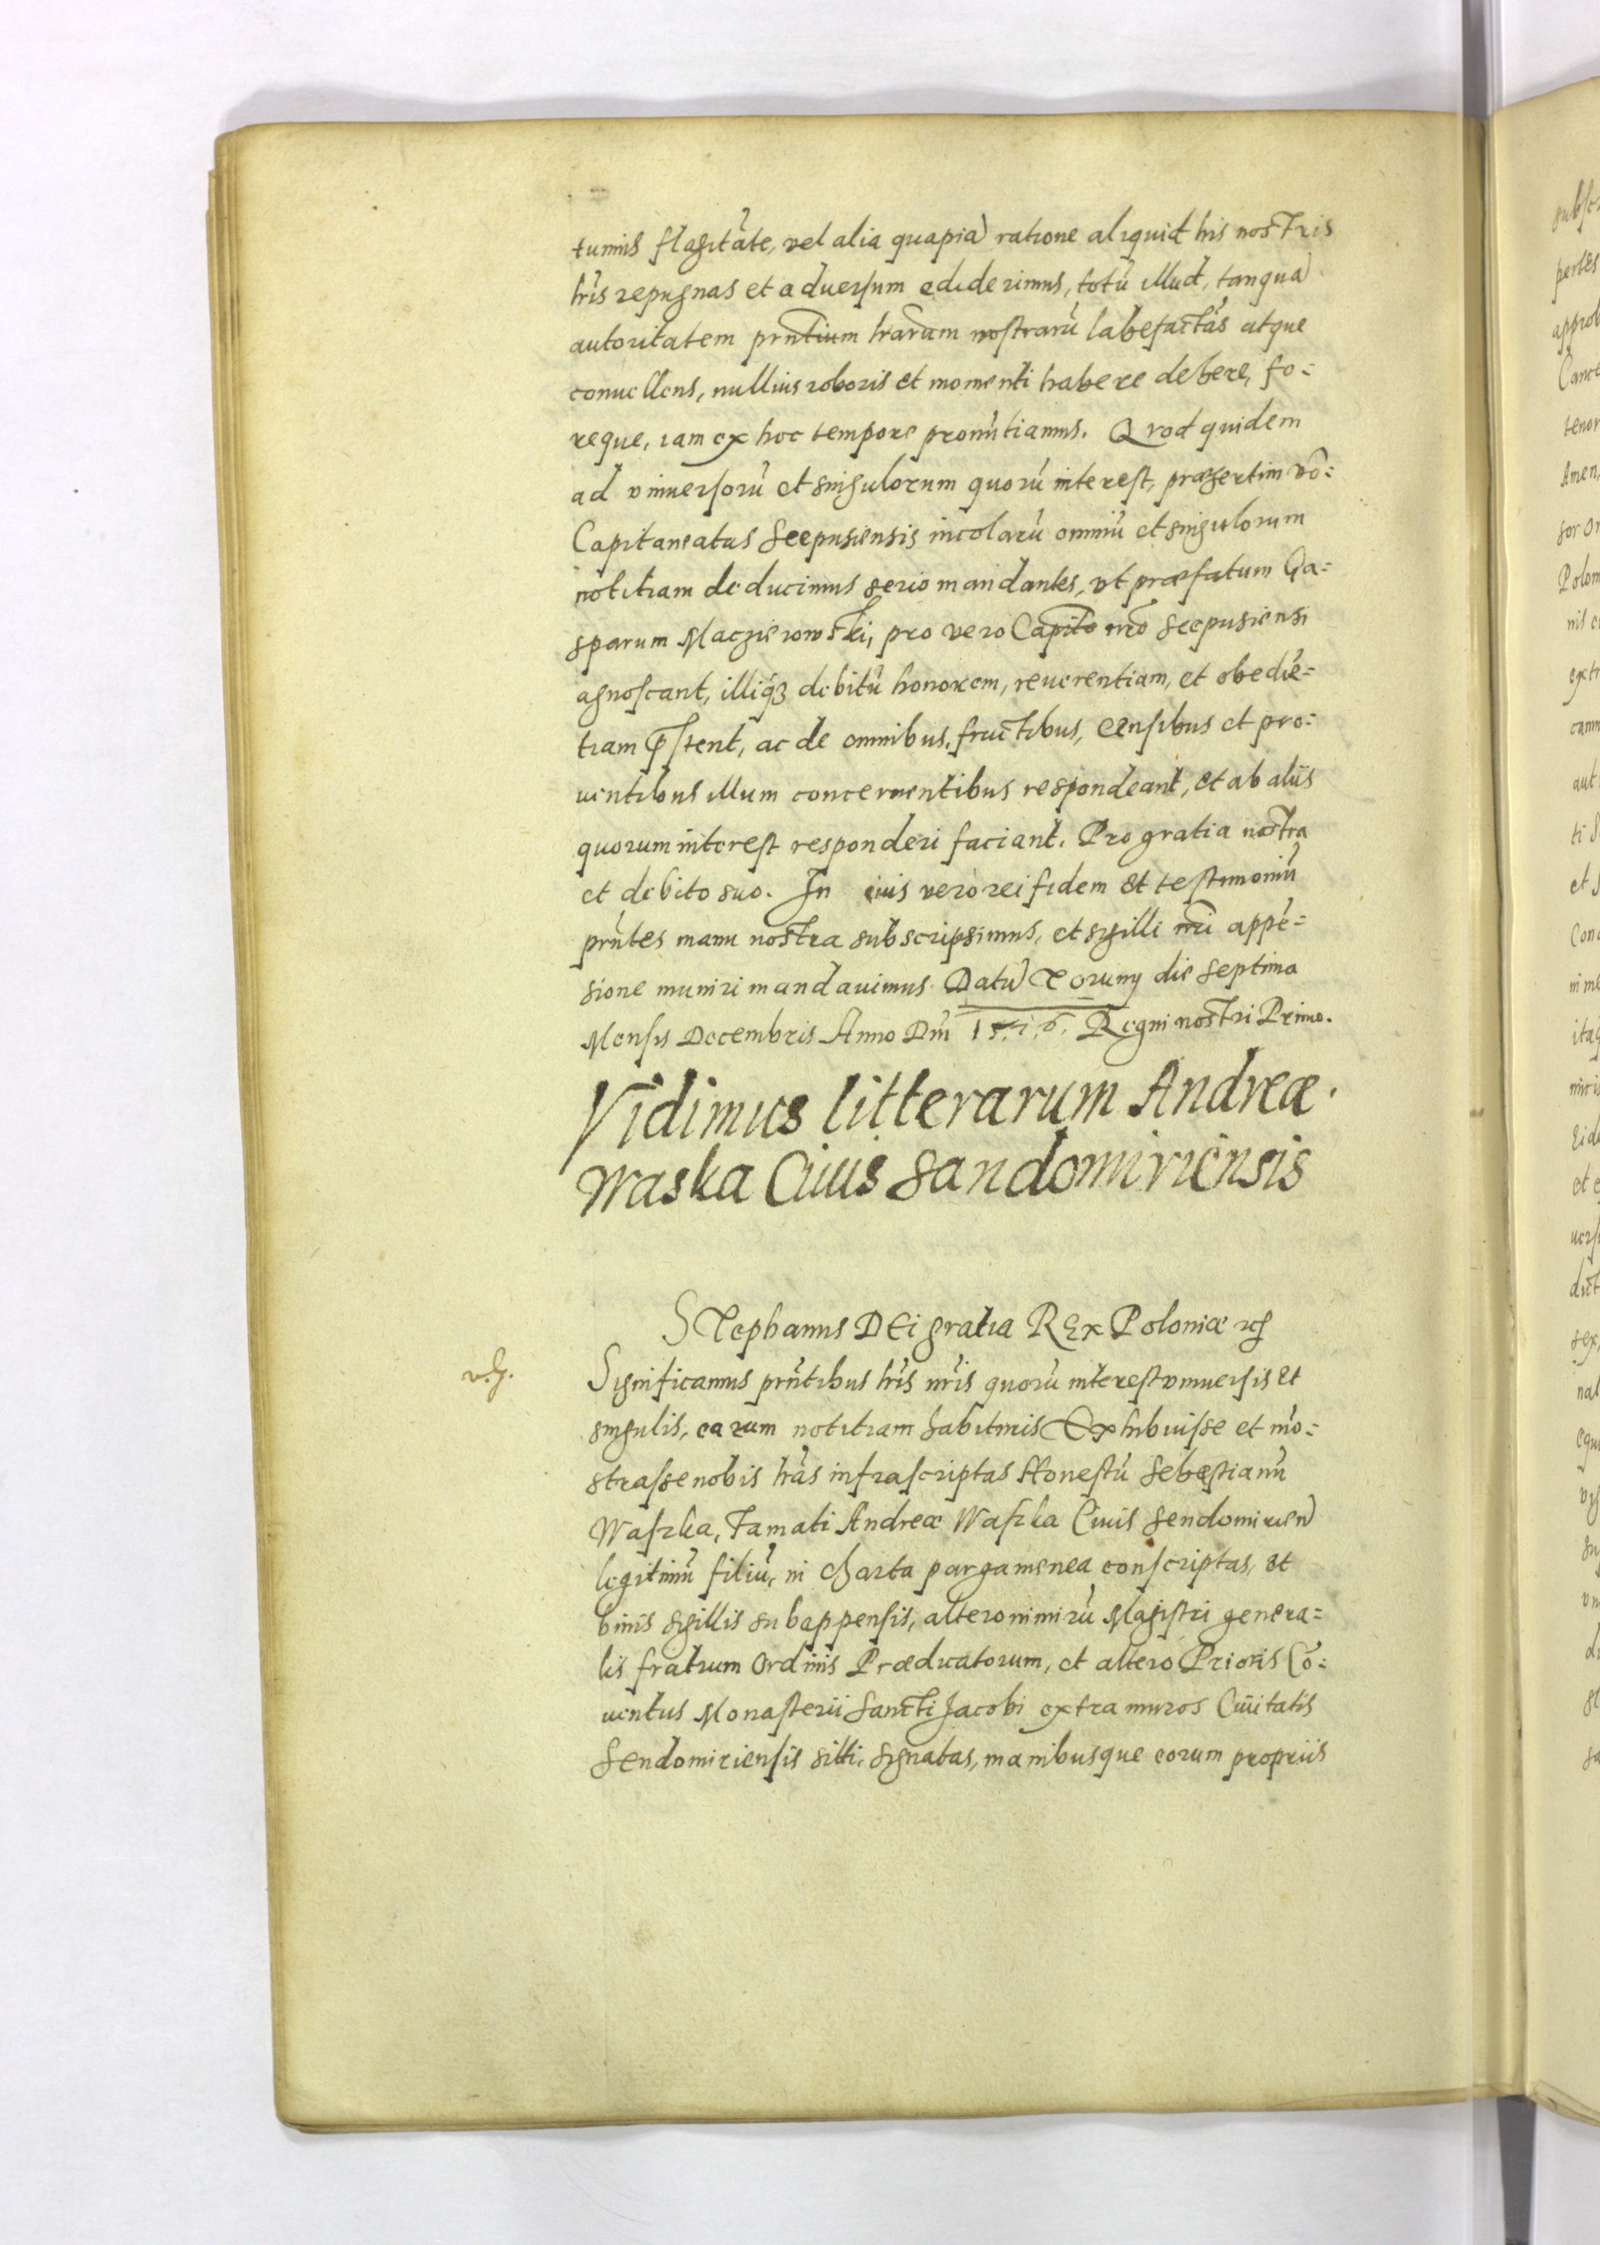 tunus flagitāte, vel alia quapiā ratione aliquid his nostris
lris̄ repugnās et aduersum ediderimus, totū illud, tanquā
autoritatem prn̄tium lrārum nostrarū labefactās atque
conuellens, nullius roboris et momenti habere debere, fo=
reque, iam ex hoc tempore pronūtiamus. Quod quidem
ad vniuersorū et singulorum quorū interest, præsertim vō=
Capitaneatus Scepusiensis incolarū omniū et singulorum
notitiam deducimus serio mandantes, vt præfatum Ga=
sparum Maczieiowski, pro vero Capit̄o nr̄o Scepusiensi
agnoscant, illiq̃ꝫ debitū honorem, reuerentiam, et obediē=
tiam p̄stent, ac de omnibus, fructibus, censibus et pro=
uentibus illum concernentibus respondeant, et ab aliis
quorum interest responderi faciant. Pro gratia nostra
et debito suo. In cuius vero rei fidem et testimoniū
prn̄tes manu nostra subscripsimus, et sigilli nr̄i appē=
sione muniri mandauimus. Datū Toruny die septima
Mensis Decembris Anno Dn̄i 1576. Regni nostri Primo.
Vidimus litterarum Andreæ
Waska Ciuis Sandomiriensis
Stephanus DEi gratia REx Poloniæ ꝛc̄
v. g.
Significamus prn̄tibus lris̄ nr̄is quorū interest vniuersis et
singulis, earum notitiam habituris Exhibuisse et mō=
strasse nobis lrās infrascriptas Honestū Sebastianū
Waszka, Famati Andreæ Waszka Ciuis Sendomirien̄
legitimū filiū, in charta pargamenea conscriptas, et
binis sigillis subappensis, altero nimirū Magistri genera=
lis fratrum Ordinis Prædicatorum, et altero Prioris Cō=
uentus Monasterii Sancti Jacobi extra muros Ciuitatis
Sendomiriensis sitti, signatas, manibusque eorum propriis